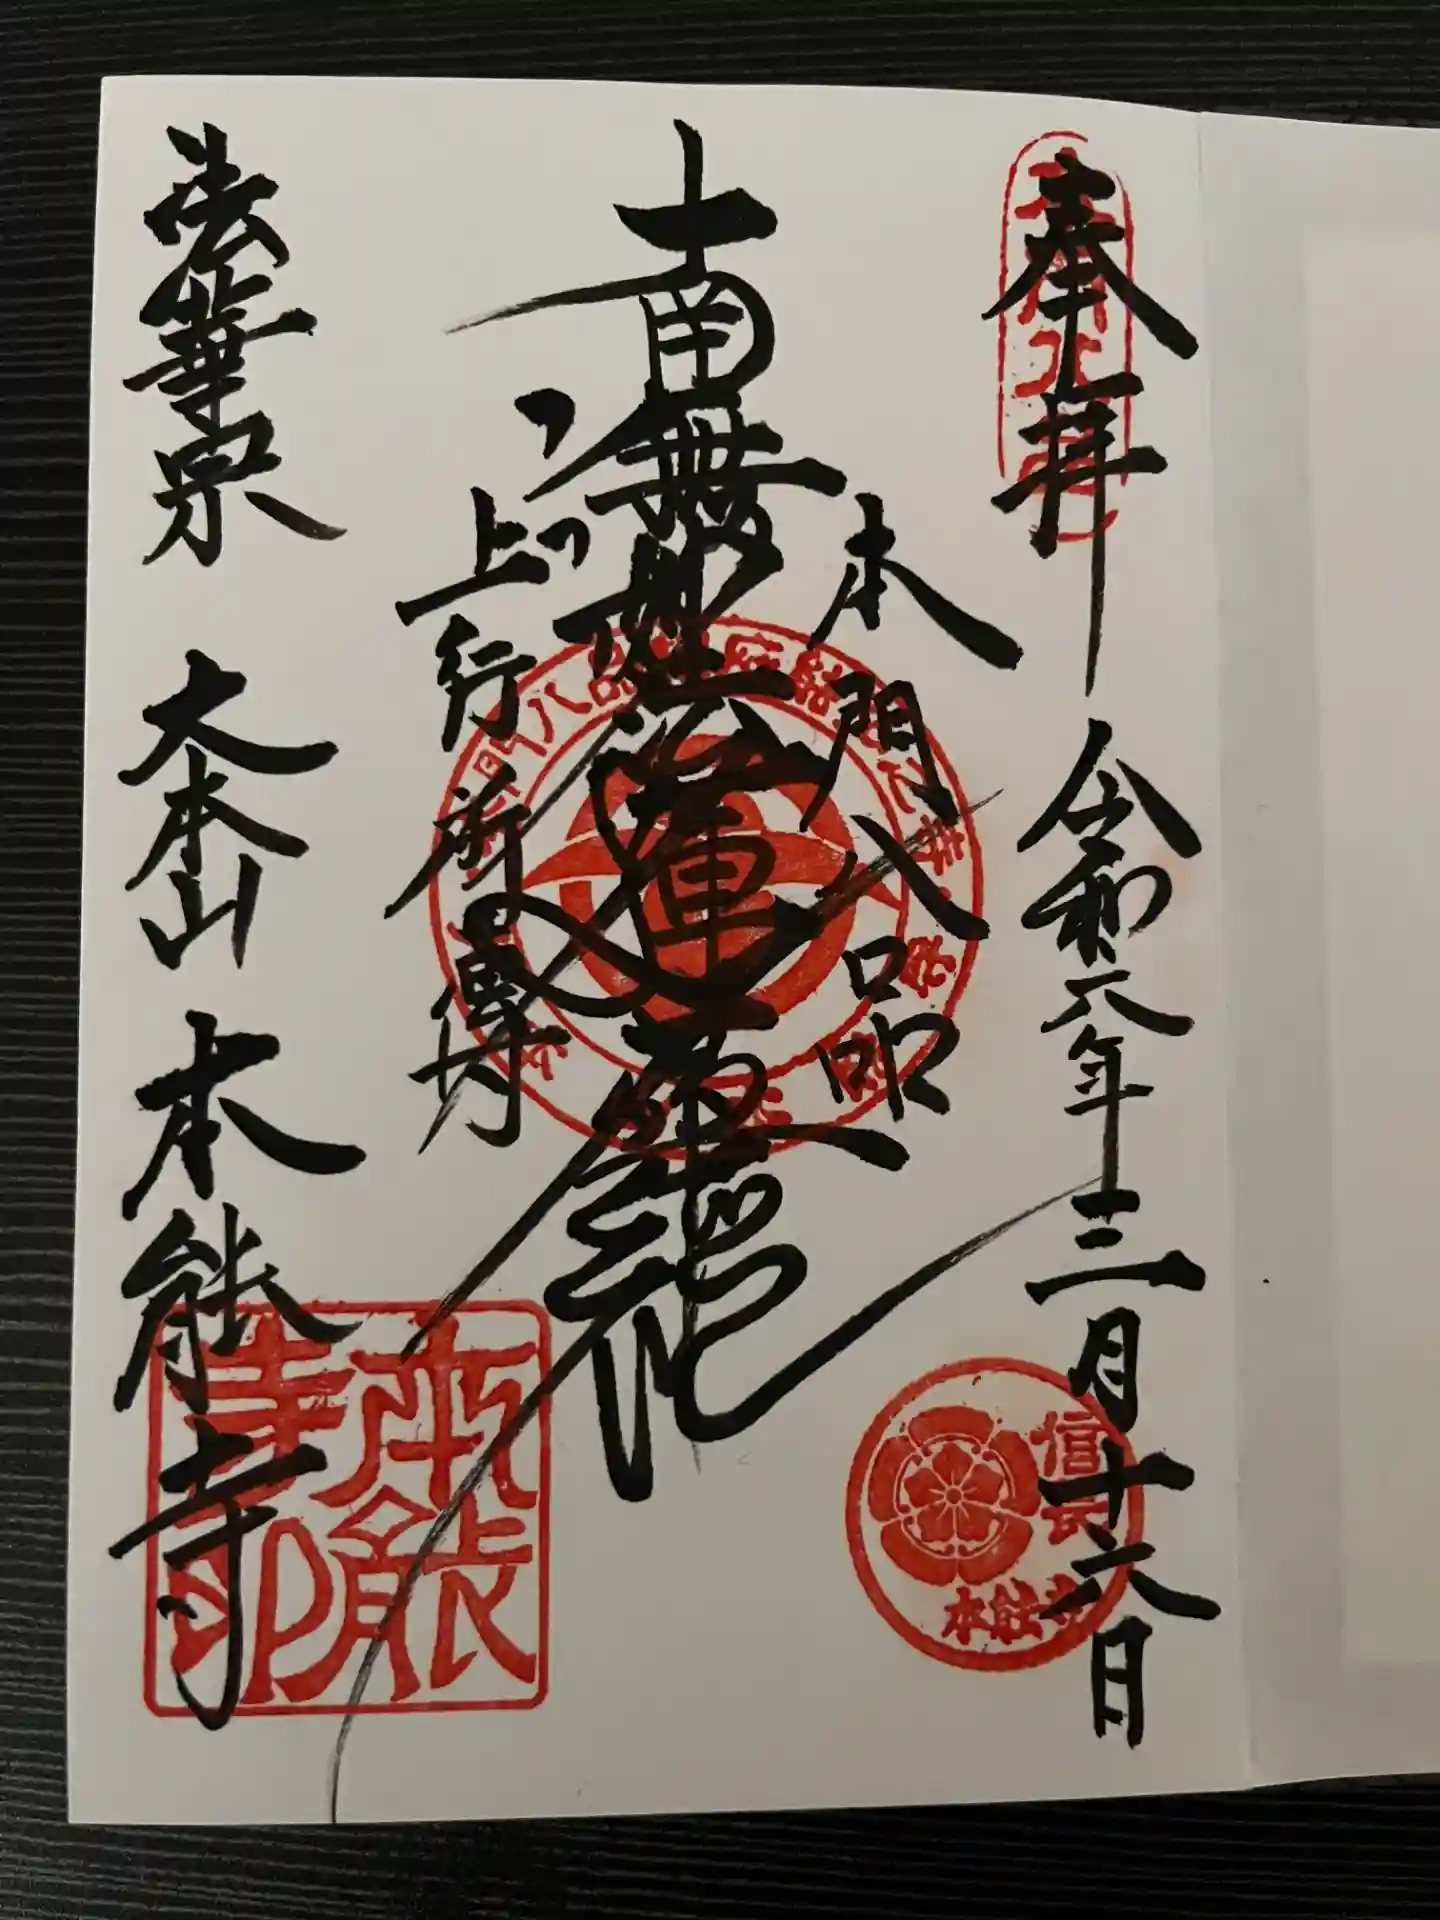 奉拝 令和六年十二月十六日
本門八品
南無妙法蓮華経
上行所傳
法華宗 大本山 本能寺
信長
本能寺
本能寺印